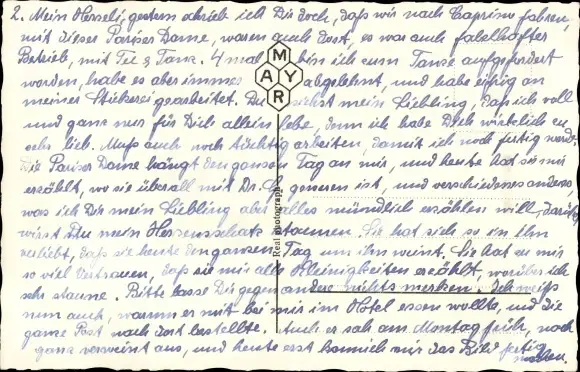 2. Mein Herzeli, gestern schrieb ich Dir doch, daß wir nach Caprino fahren,
mit dieser Pariser Dame, waren auch dort, es war auch fabelhafter
Betrieb, mit Tee & Tanz. 4 mal bin ich zum Tanze aufgefordert
worden, habe es aber immer abgelehnt, und habe eifrig an
meiner Stickerei gearbeitet. Du siehst mein Liebling, daß ich voll
und ganz nur für Dich allein lebe, denn ich habe Dich wirklich zu
sehr lieb. Muß auch noch tüchtig arbeiten, damit ich noch fertig werde.
Die Pariser Dame hängt den ganzen Tag an mir, und heute hat sie mir
erzählt, wo sie überall mit Dr. gewesen ist, und verschiedenes anderes,
was ich Dir mein Liebling aber alles mündlich erzählen will, darüber
wirst Du mein Herzensschatz staunen. Sie hat sich so in Ihn
verliebt, daß sie heute den ganzen Tag um ihn weint. Sie hat zu mir
so viel Vertrauen, daß sie mir alle Kleinigkeiten erzählt, worüber ich
sehr staune. Bitte lasse Dir gegen andere nichts merken. Ich weiß
nun auch, warum er mit bei mir im Hotel essen wollte, und die
ganze Post nach dort bestellte. Auch er sah am Montag früh, noch
ganz verweint aus, und heute erst kann ich mir das Bild fertig
machen.
MAYR
Real photograph